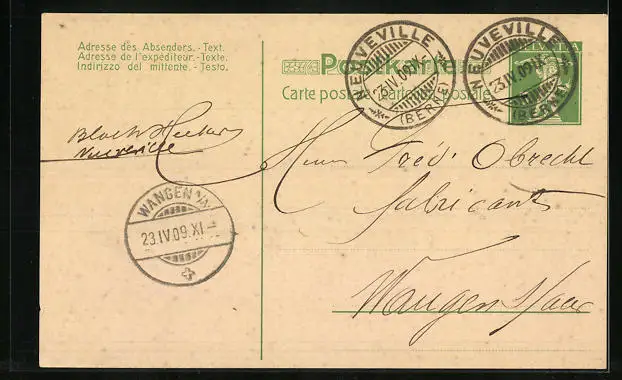 Adresse des Absenders. - Text.
Adresse de l'expéditeur. - Texte.
Indirizzo del mittente. - Testo.
Postkarte
Carte postale. Cartolina postale
HELVETIA
NEUVEVILLE
23.IV.09.XI
(BERNE)
NEUVEVILLE
23.IV.09.XI
(BERNE)
Neuveville
WANGEN
23.IV.09.XI
Herrn Fréd. Obrecht
Fabricant
Wangen s/Aar